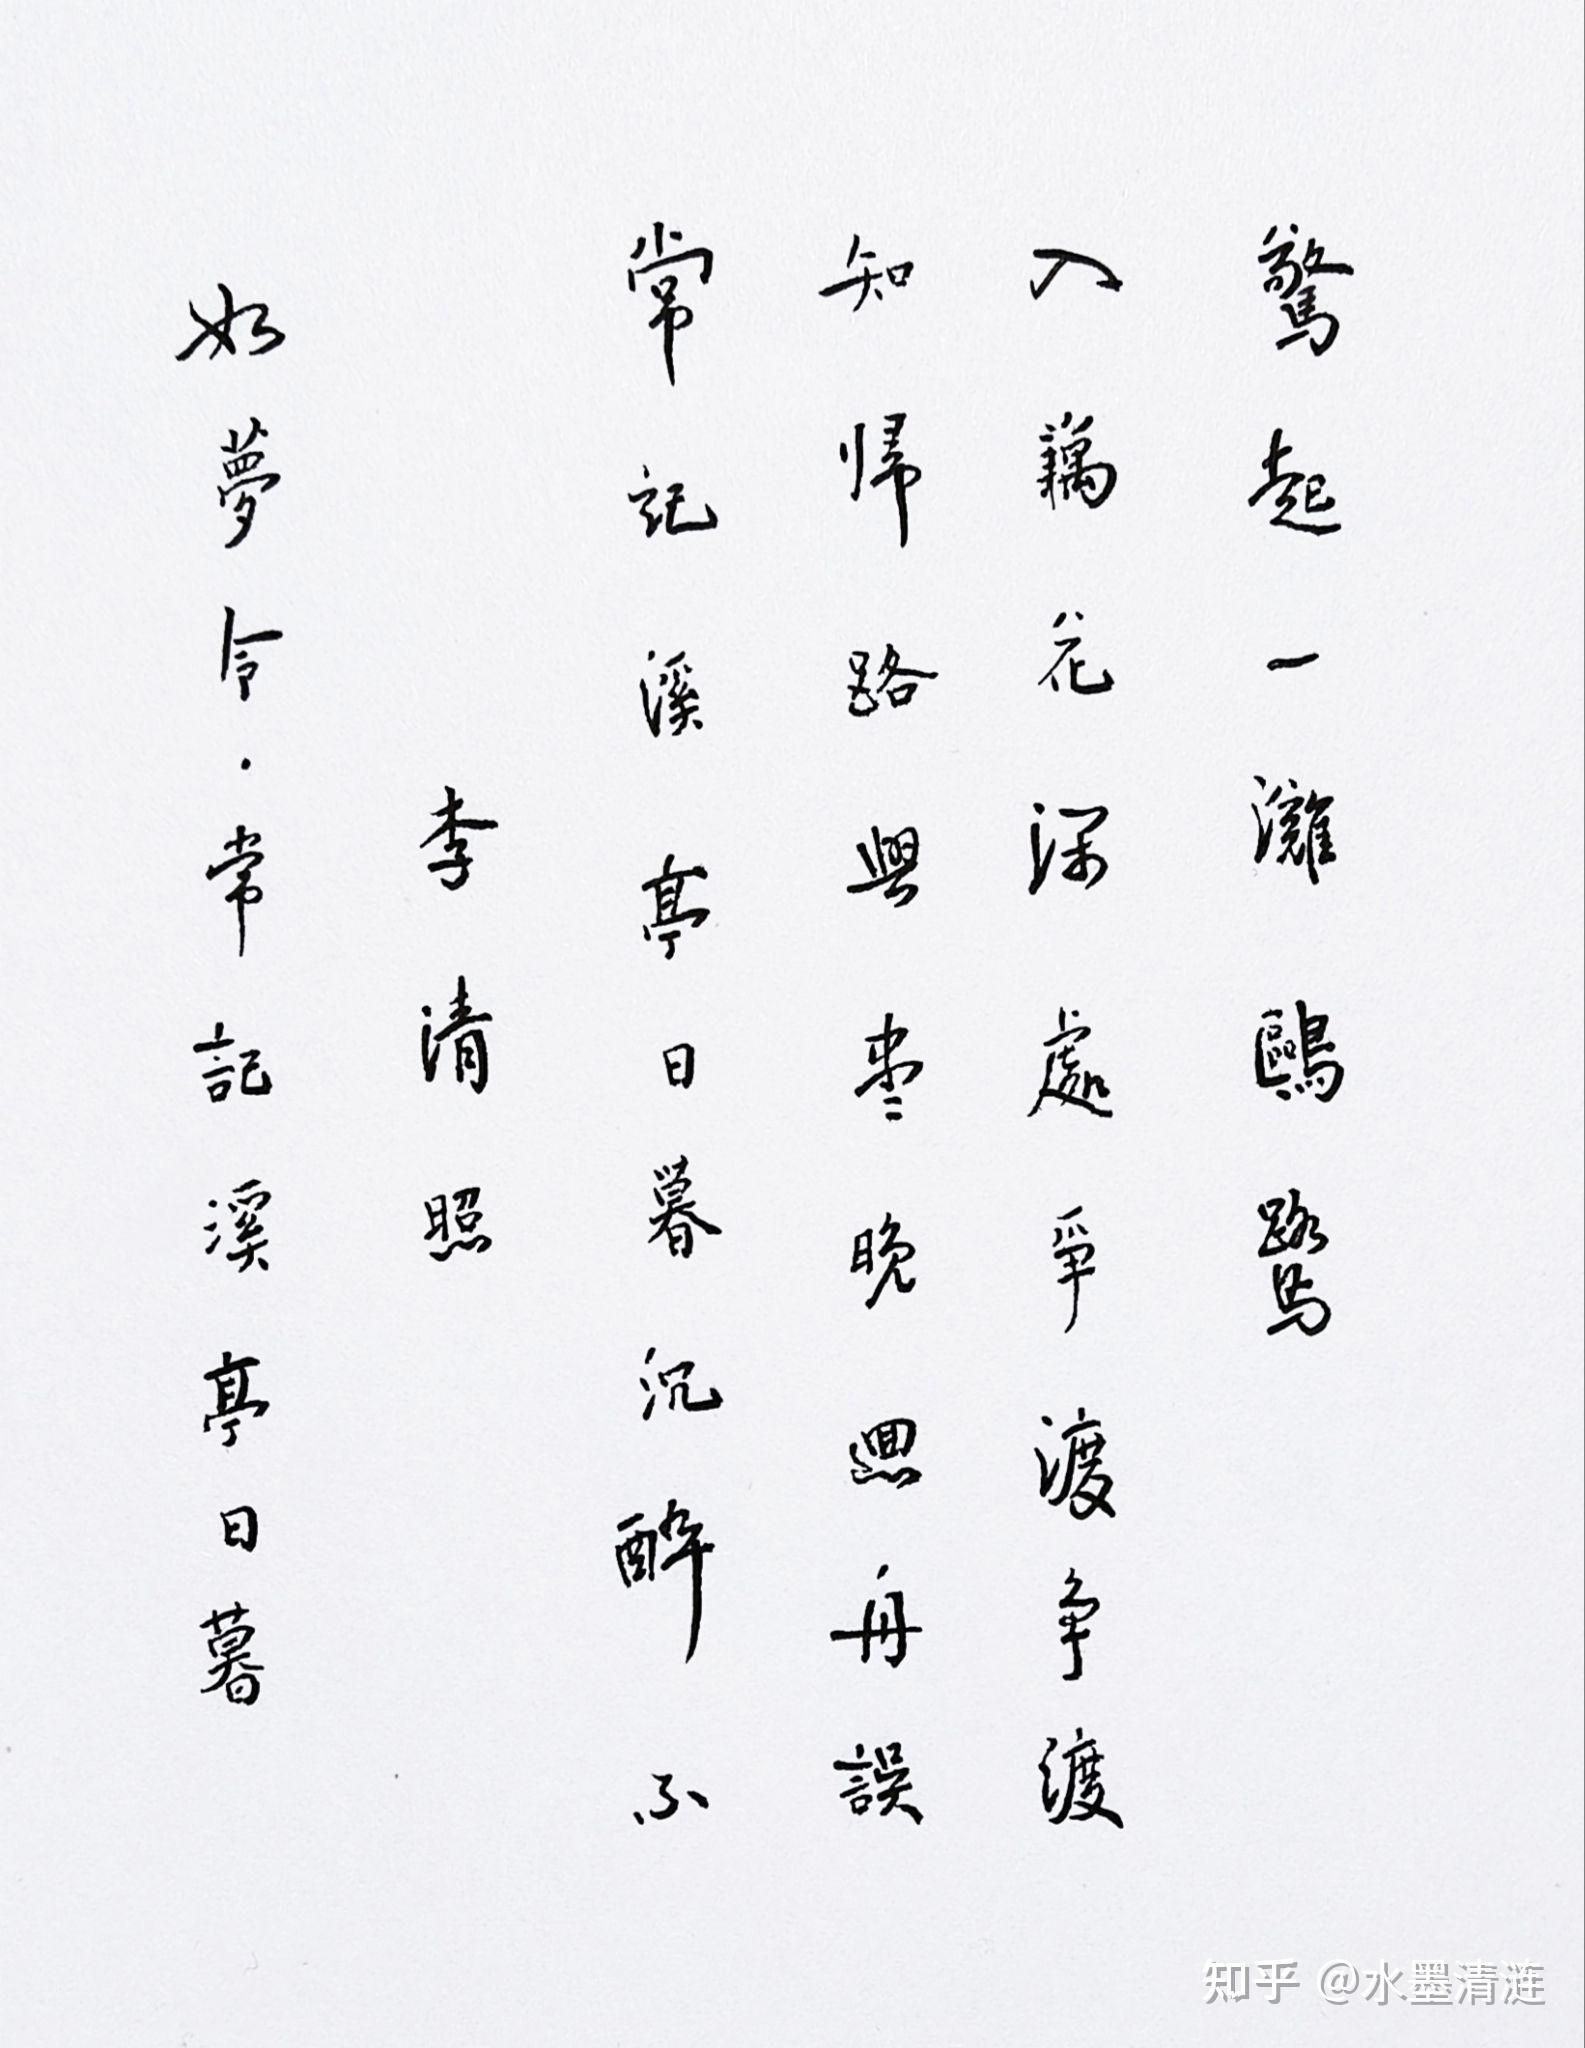 如夢令·常記溪亭日暮
李清照
常記溪亭日暮沉醉不
知帰路興盡晚迴舟誤
入藕花深處爭渡争渡
驚起一灘鷗鷺
知乎 @水墨清涟